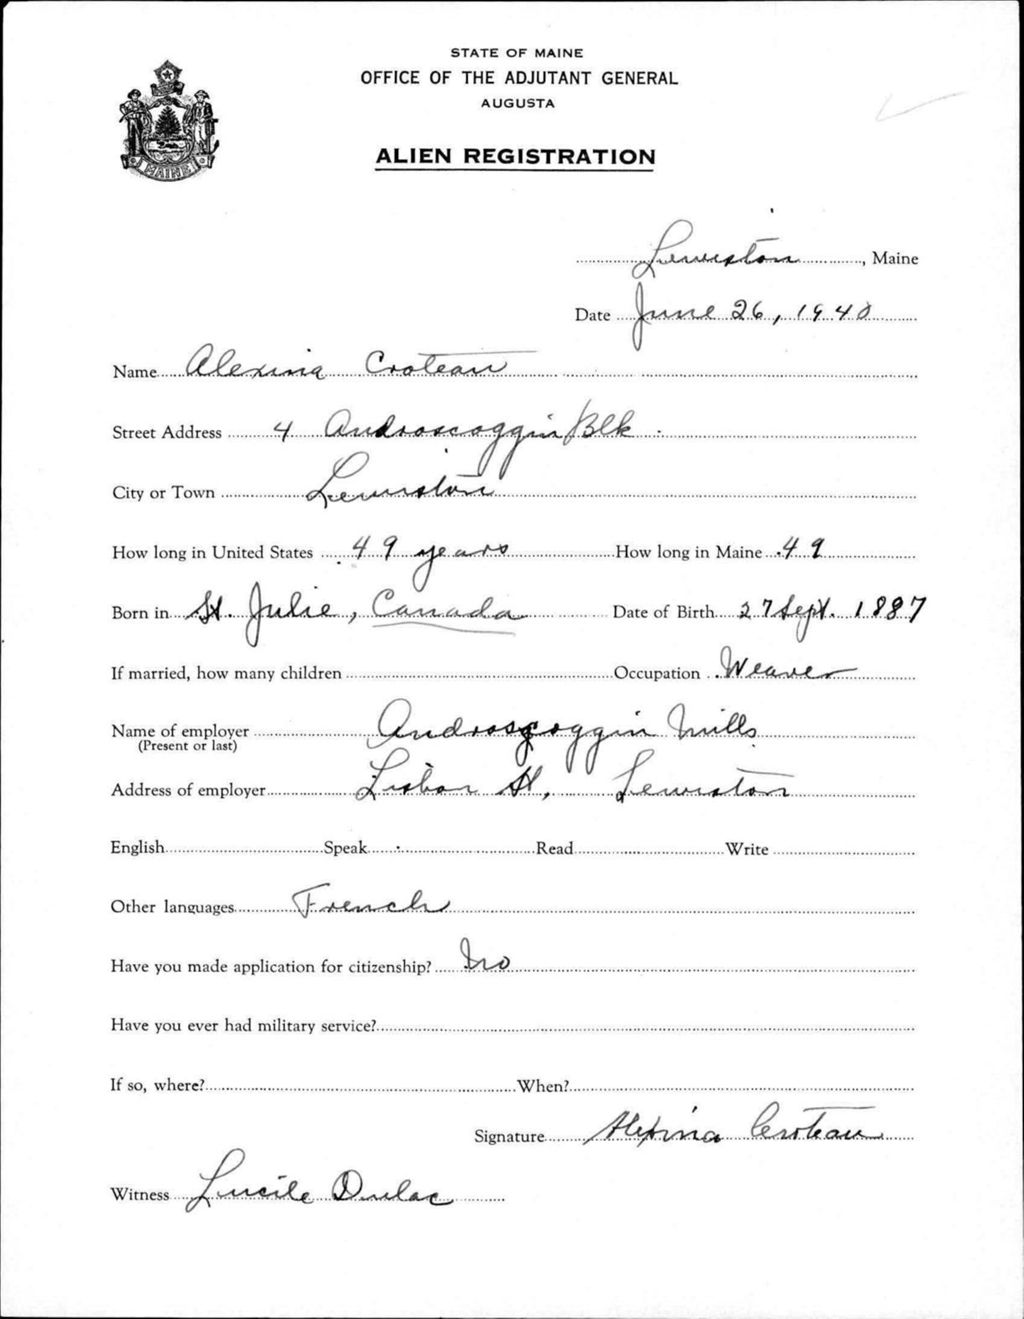 STATE OF MAINE
OFFICE OF THE ADJUTANT GENERAL
AUGUSTA
ALIEN REGISTRATION
MAINE
Lewiston, Maine
Date June 26, 1940
Name Alexina Croteau
Street Address 4 Androscoggin Blk
City or Town Lewiston
How long in United States 49 years How long in Maine 49
Born in St. Julie, Canada Date of Birth 27 Sept. 1887
If married, how many children Occupation Weaver
Name of employer Androscoggin Mills
(Present or last)
Address of employer Lisbon St, Lewiston
English Speak Read Write
Other languages French
Have you made application for citizenship? No
Have you ever had military service?
If so, where? When?
Signature Alexina Croteau
Witness Lucile Dulac